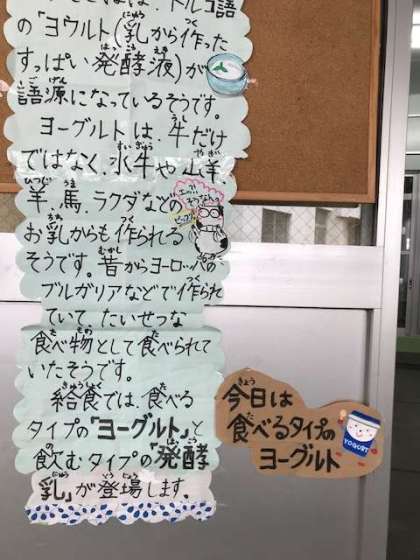 トルコ語
の「ヨウルト(乳から作った
すっぱい発酵液)が
語源になっているそうです。
ヨーグルトは、牛だけ
ではなく、水牛や山羊、
羊、馬、ラクダなどの
お乳からも作られる
そうです。昔からヨーロッパの
ブルガリアなどで作られ
ていて たいせつな
食べ物として食べられて
いたそうです。
給食では、食べる
タイプの「ヨーグルト」と
飲むタイプの「発酵
乳」が登場します。
今日は
食べるタイプの
ヨーグルト